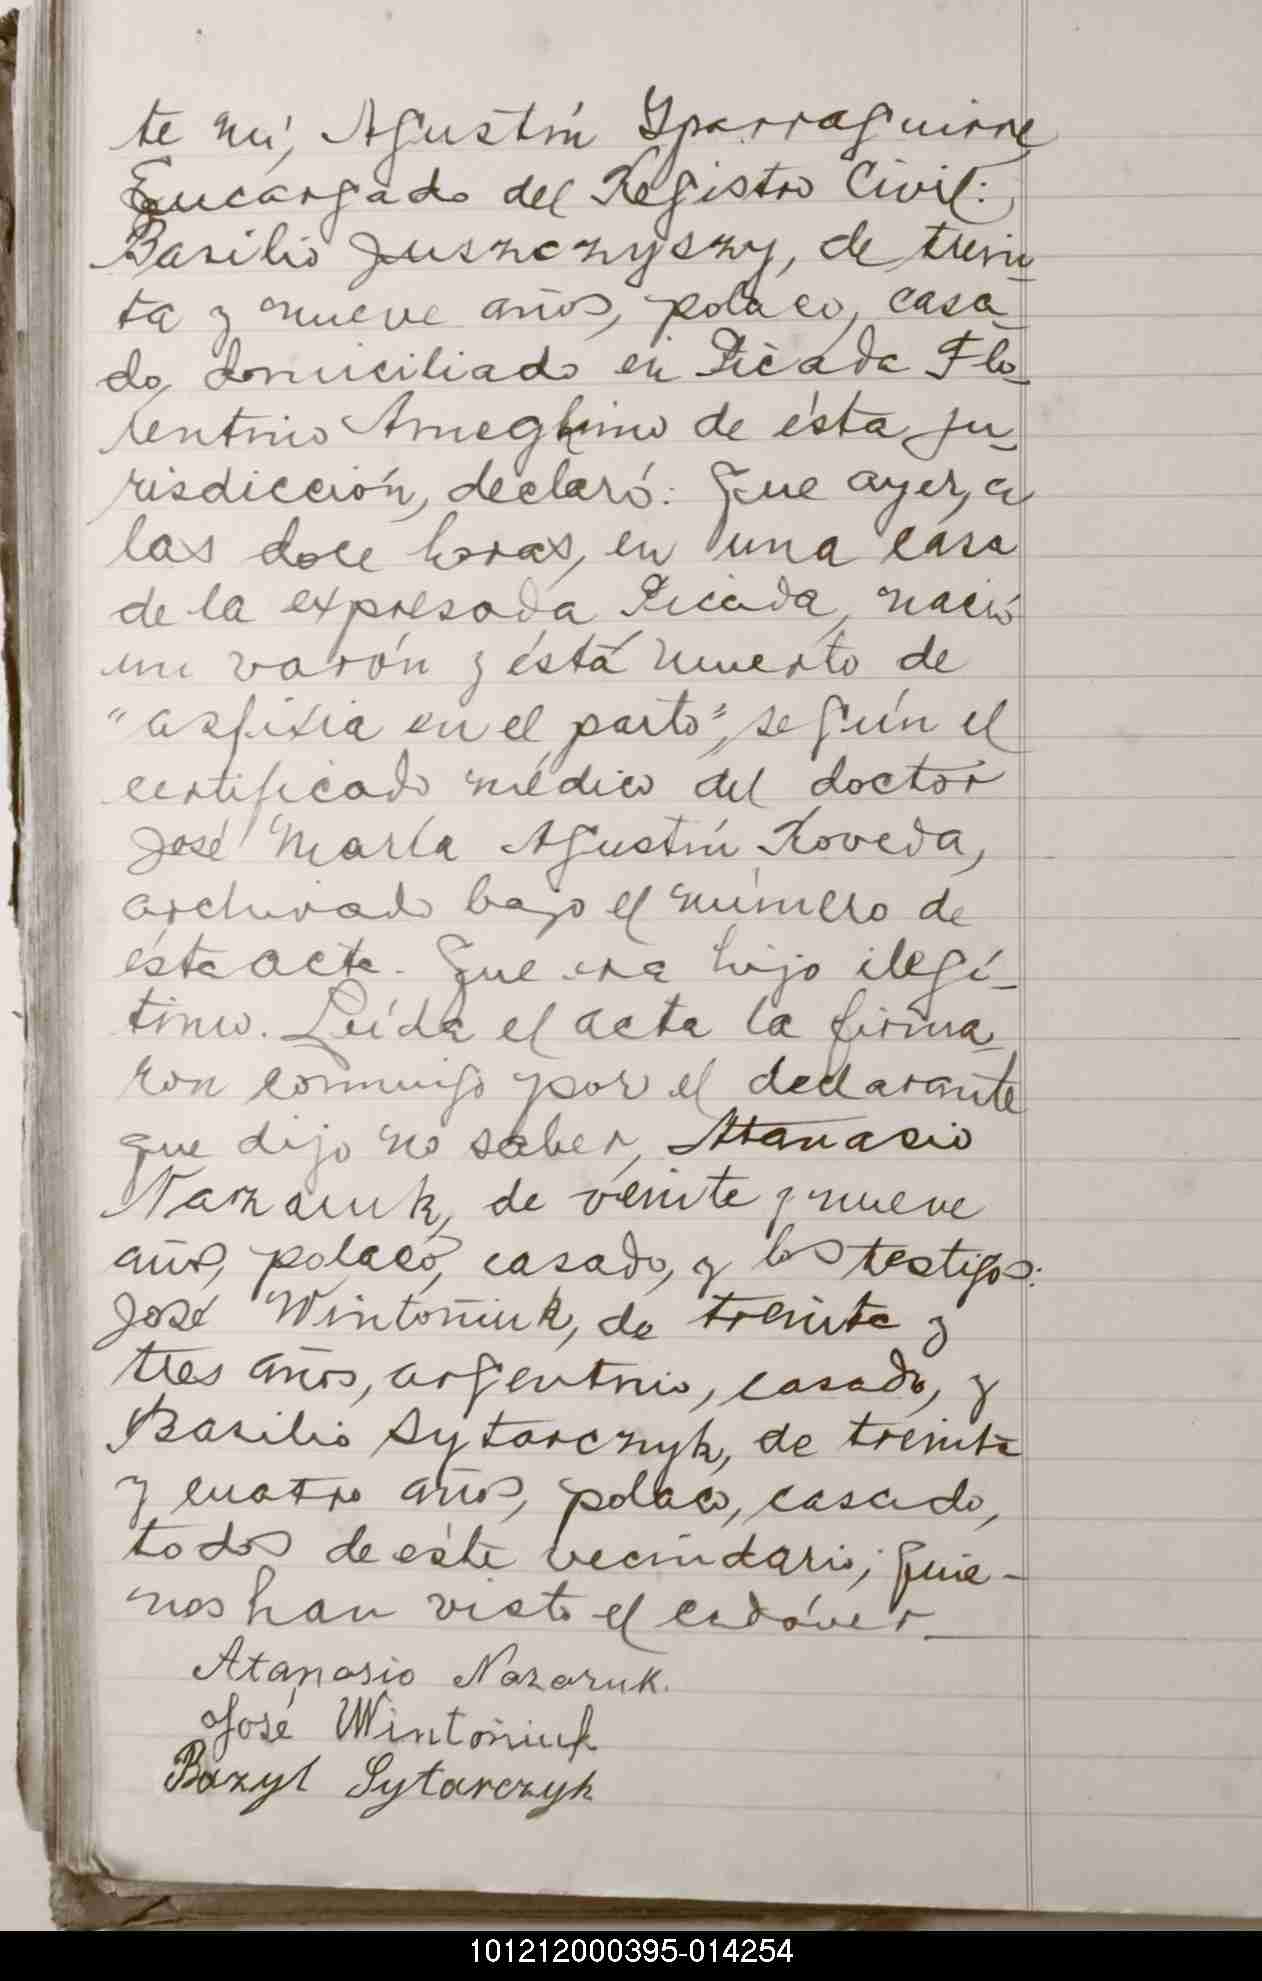 te mí, Agustín Yparraguirre,
Encargado del Registro Civil:
Basilio Juszczyszy, de trein-
ta y nueve años, polaco, casa-
do, domiciliado en Picada Flo-
rentino Ameghino de ésta ju-
risdicción, declaró: Que ayer, a
las doce horas, en una casa
de la expresada Picada, nació
un varón y está muerto de
"asfixia en el parto", según el
certificado médico del doctor
José María Agustín Roveda,
archivado bajo el número de
ésta acta. Que era hijo ilegí-
timo. Leída el acta la firma-
ron conmigo por el declarante
que dijo no saber, Atanasio
Nazaruk, de veinte y nueve
años, polaco, casado, y los testigos:
José Wintoniuk, de treinta y
tres años, argentino, casado, y
Basilio Sytarczyk, de treinta
y cuatro años, polaco, casado,
todos de éste vecindario; quie-
nes han visto el cadáver.
Atanasio Nazaruk.
José Wintoniuk
Bazyl Sytarczyk
101212000395-014254